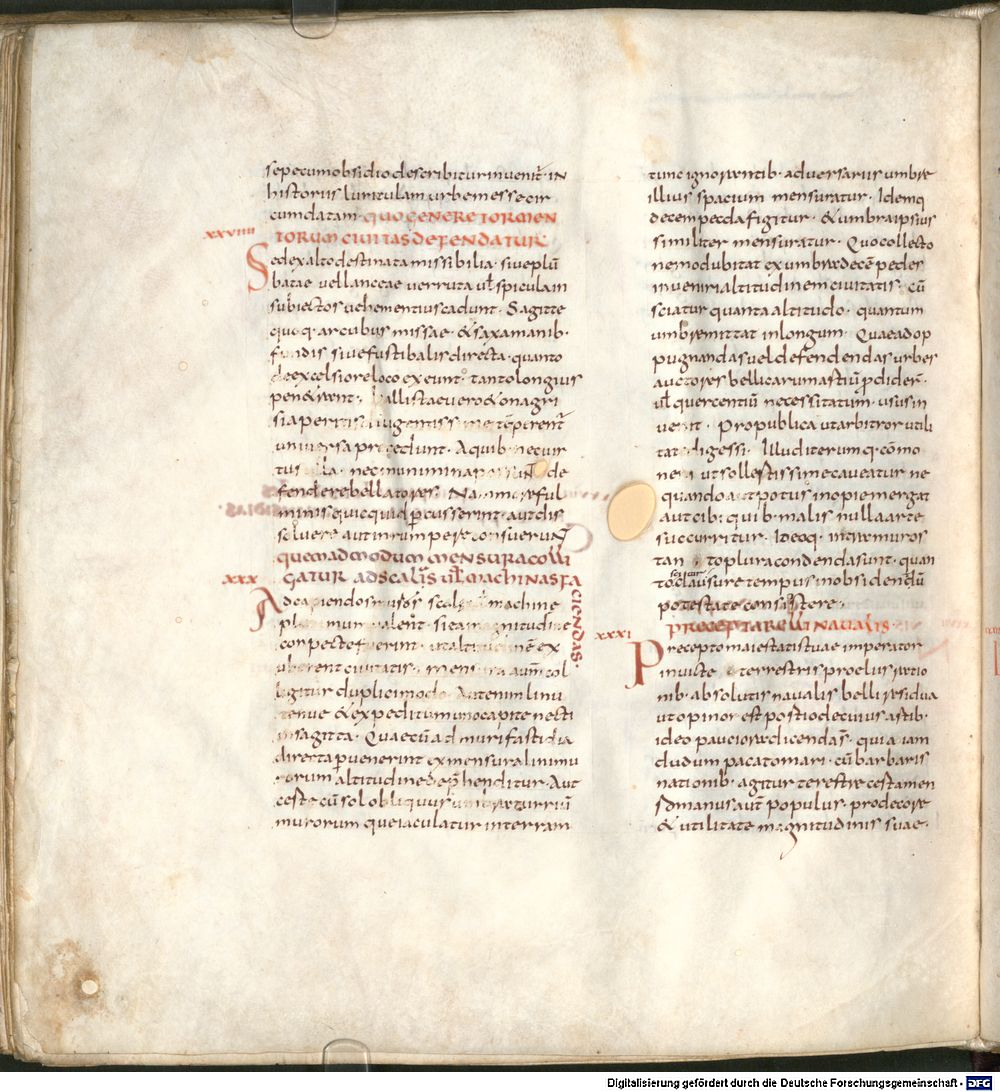 sepecumobsidiodescribiturinuenit· in
historiis luriculam urbem esse cir
cumdatam· QUO GENERE TORMEN
XXVIIII TORUM CIUITAS DEFENDATUR
Sed ex alto destinata missibilia· siue plū
batae uel lanceae uerruta ul̄ spicula in
subiectos uehementius cadunt· Sagitte
quoq· arcubus missae· & saxa manib·
fundis siue fustibalis directa· quanto
de excelsiore loco exeunt· tanto longius
penetrant· ballistae uero & onagri
si a peritis
uniuersa precedunt· A quib· nec uir
tus ulla· nec munimina possunt de
fendere bellatores· Nam more ful
minis quicquid p̄cusserint aut dis
soluere aut inrumpere consuerunt
QUEMADMODUM MENSURA COLLI
XXX GATUR AD SCALAS UL̄ MACHINAS FA
CIENDAS
Ad capiendos muros scalae machine
plurimum ualent· si ea magnitudine
conpecte fuerint· ut altitudinē ex
uberent ciuitatis· mensura autē col
ligitur duplici modo· Aut enim linū
tenue & expeditum uno capite necti
in sagitta· Quae cū ad muri fastidia
directa peruenerint ex mensura lini mu
rorum altitudine dep̄henditur· Aut
certe cū sol obliquus umbrā turriū
murorum que iaculatur in terram
tunc ignorantib· aduersariis umbre
illius spacium mensuratur· Idemq
decempeda figitur· & umbra ipsius
similiter mensuratur· Quo collecto
nemo dubitat ex umbra decē pedes
inueniri altitudinem ciuitatis· cū
sciatur quanta altitudo· quantum
umbre mittat in longum· Quae ad op
pugnandas uel defendendas urbes
auctores bellicarum astiū p̄dider̄·
ul̄ que recentiū necessitatum· usus in
uenit· Pro publica ut arbitror utili
tate digessi· Illud iterumq· cōmo
neri ut sollestissime caueatur ne
quando aut potus inopie mergat
aut cib: quib· malis nulla arte
succurritur· Ideoq· intra muros
tanto plura condenda sunt· quan
to clausure tempus in obsidendū
potestate consistere·
PRECEPTA BELLI NAUALIS·
XXXI Precepto maiestatis tuae imperator
inuicte terrestris proelus ratio
nib· absolutis naualis belli residua
ut opinor est postio de cuius astib·
ideo pauciora dicenda s̄· quia iam
dudum pacato mari· cū barbaris
nationib· agitur terestre cestamen
Sd manus aut̄ populus· pro decore
& utilitate magnitudinis suae·
Digitalisierung gefördert durch die Deutsche Forschungsgemeinschaft - DFG